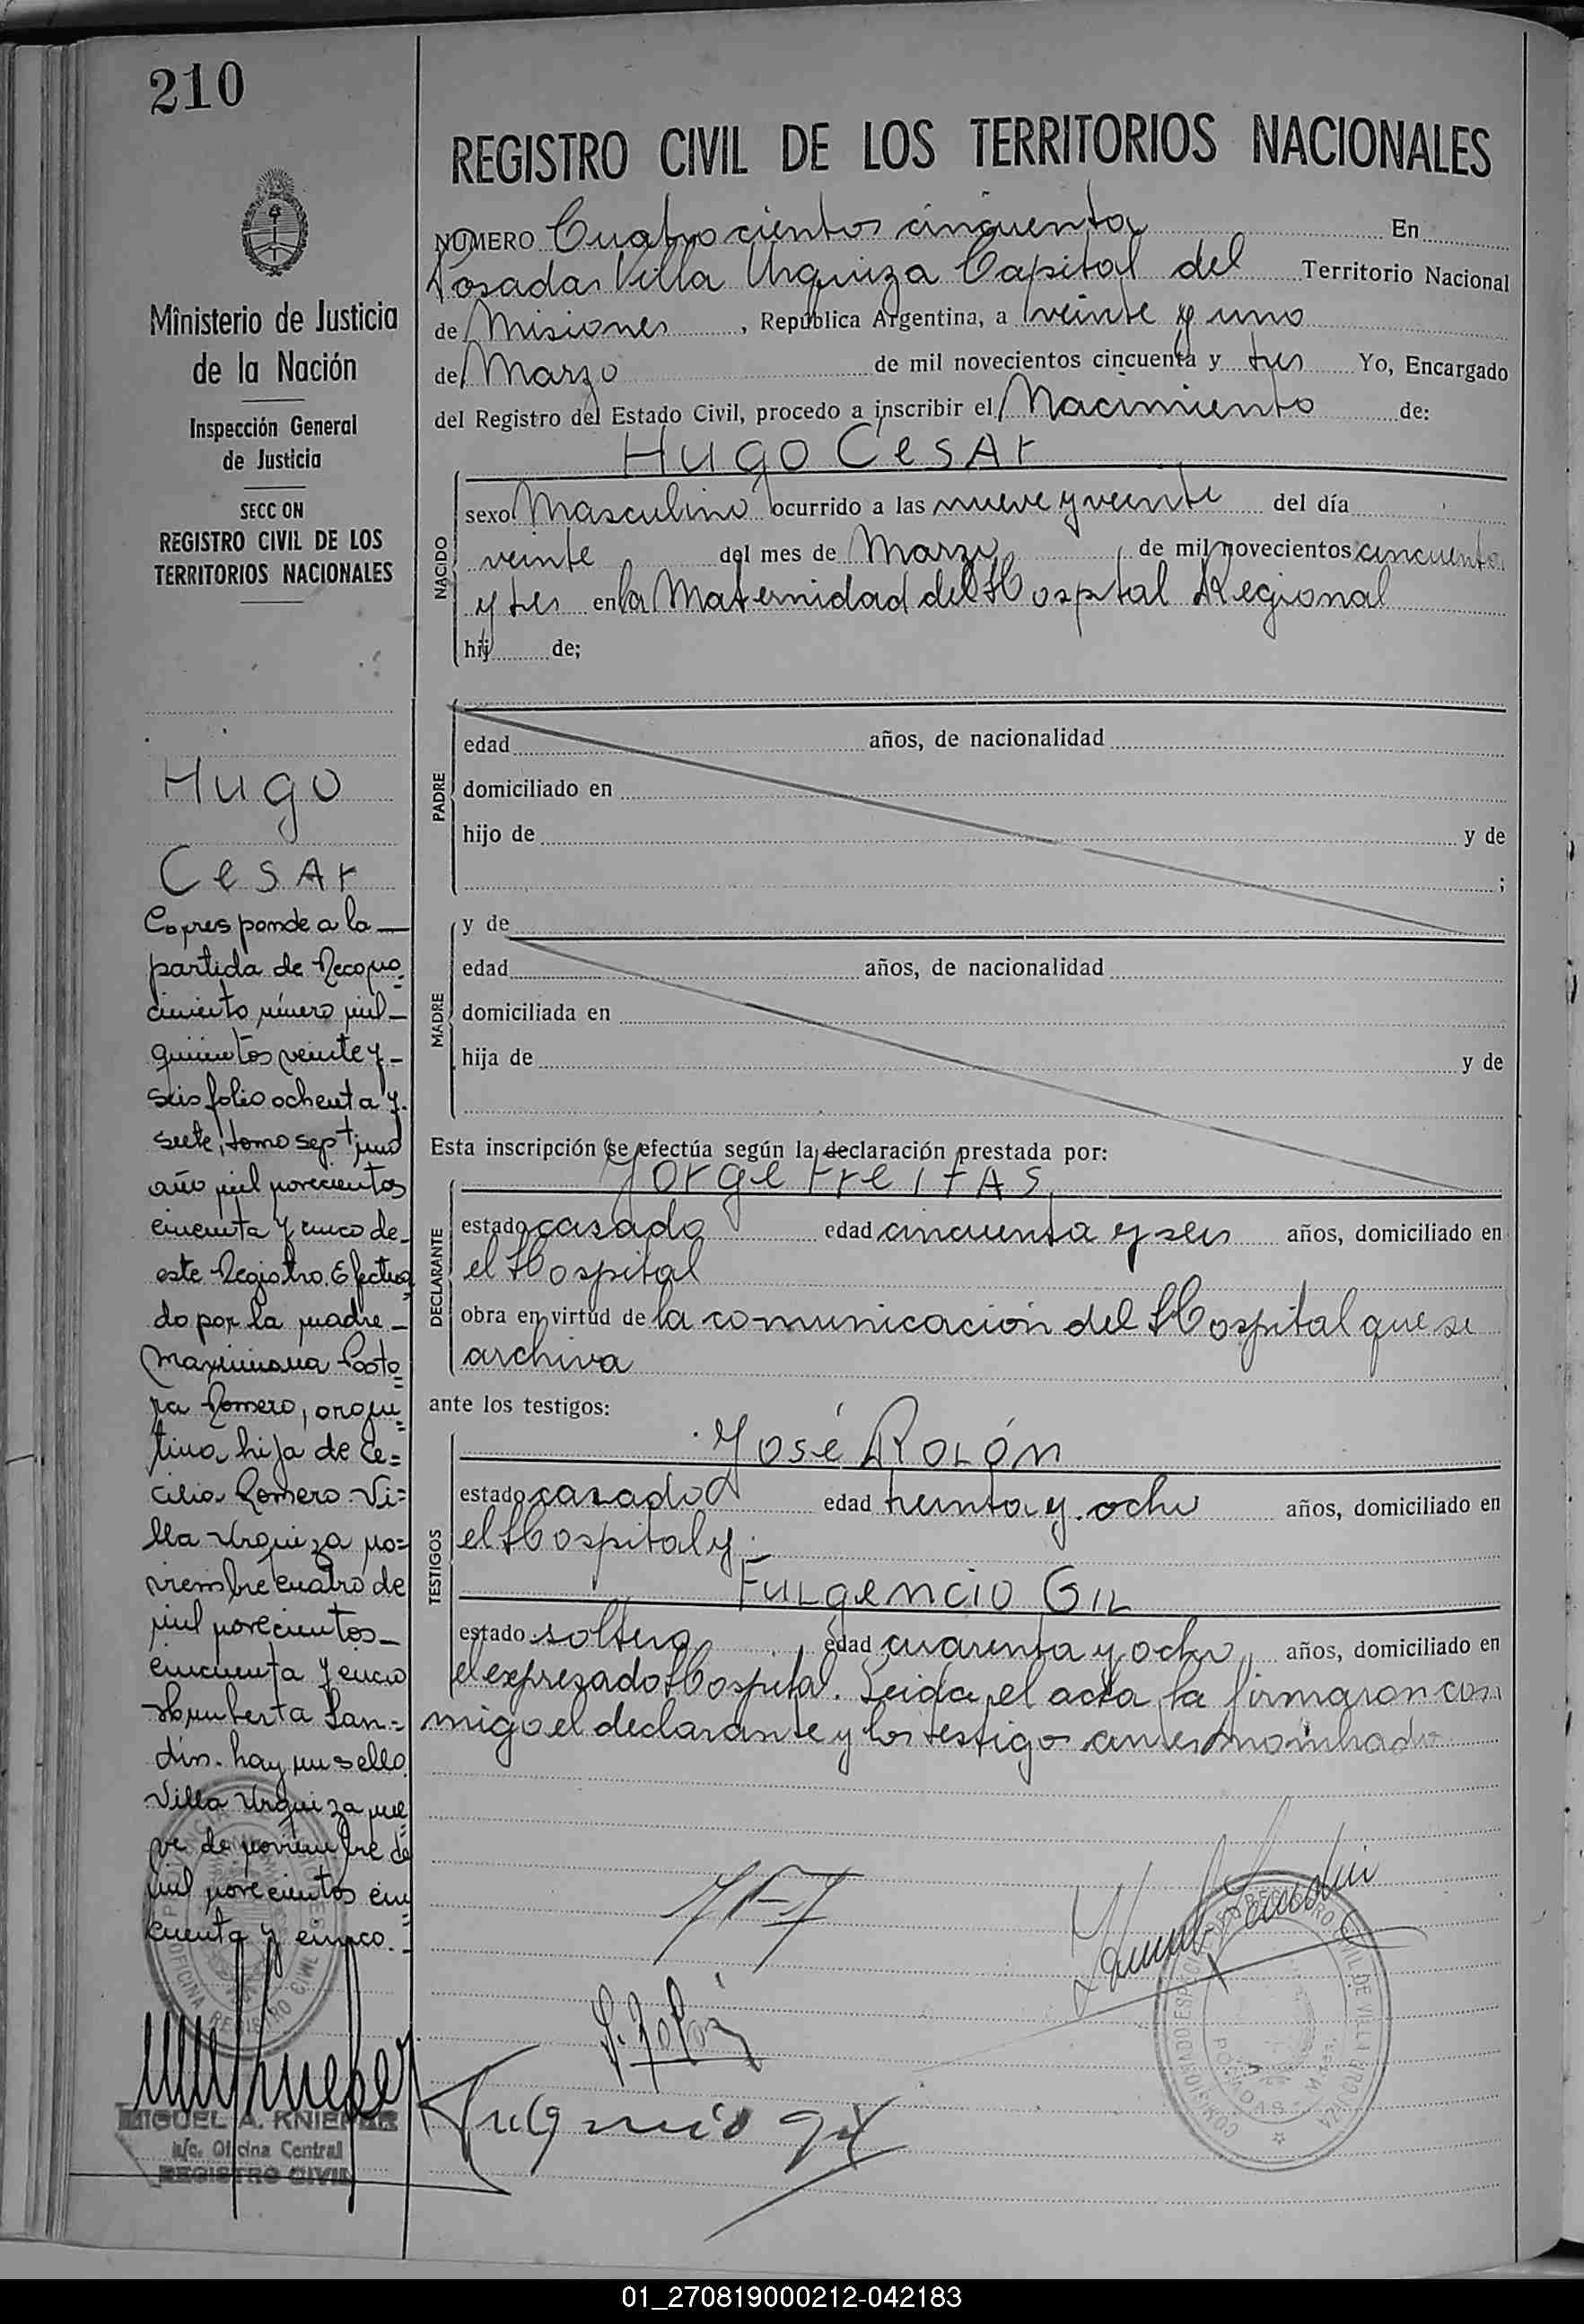 210
Ministerio de Justicia
de la Nación
Inspección General
de Justicia
SECC ON
REGISTRO CIVIL DE LOS
TERRITORIOS NACIONALES
Hugo
Cesar
Corresponde a la
partida de Recono-
cimiento número mil
quinientos veinte y
seis folio ochenta y
siete, tomo septimo
año mil novecientos
cincuenta y cinco de
este Registro. Efectua
do por la madre
Maximiana
Romero, argen-
tina, hija de Ce-
cilia Romero. Vi-
lla Urquiza no-
viembre cuatro de
mil novecientos
cincuenta y cinco
Humberto Lan-
din. hay un sello.
Villa Urquiza nue
ve de noviembre de
mil novecientos cin
cuenta y cinco.
OFICINA REGISTRO CIVIL
MIGUEL A. KNIEPER
a/c. Oficina Central
REGISTRO CIVIL
REGISTRO CIVIL DE LOS TERRITORIOS NACIONALES
NUMERO Cuatrocientos cincuenta En
Posadas Villa Urquiza Capital del Territorio Nacional
de Misiones, República Argentina, a veinte y uno
de Marzo de mil novecientos cincuenta y tres Yo, Encargado
del Registro del Estado Civil, procedo a inscribir el Nacimiento de:
Hugo Cesar
NACIDO
sexo Masculino ocurrido a las nueve y veinte del día
veinte del mes de Marzo de mil novecientos cincuenta
y tres en la Maternidad del Hospital Regional
hij de;
PADRE
edad años, de nacionalidad
domiciliado en
hijo de y de
;
MADRE
y de
edad años, de nacionalidad
domiciliada en
hija de y de
Esta inscripción se efectúa según la declaración prestada por:
Jorge Freitas
DECLARANTE
estado casado edad cincuenta y seis años, domiciliado en
el Hospital
obra en virtud de la comunicación del Hospital que se
archiva
ante los testigos:
TESTIGOS
José Rolón
estado casado edad treinta y ocho años, domiciliado en
el Hospital y
Fulgencio Gil
estado soltero edad cuarenta y ocho años, domiciliado en
el expresado Hospital. Leida el acta la firmaron con
migo el declarante y los testigos antes
J. Rolón
Fulgencio Gil
POSADAS
01_270819000212-042183